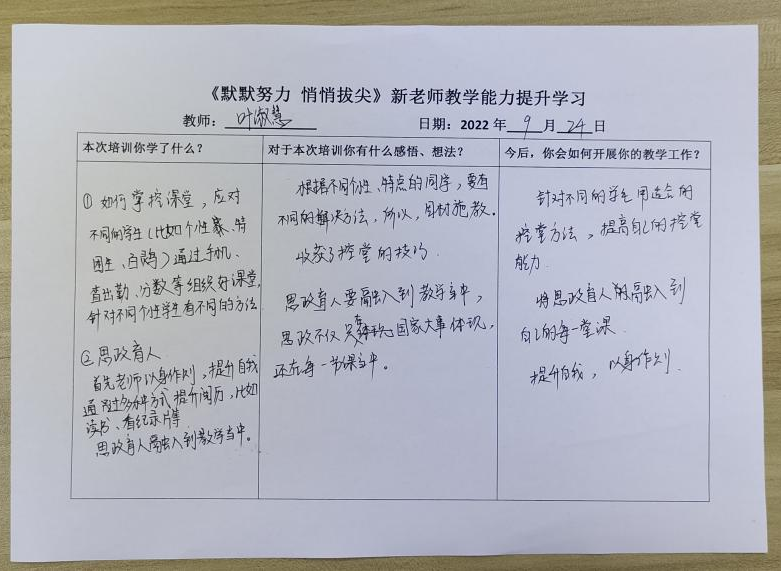 《默默努力 悄悄拔尖》新老师教学能力提升学习
教师：叶淑慧 日期：2022 年 9 月 24 日
本次培训你学了什么？
① 如何掌控课堂，应对
不同的学生（比如个性 、特
困生、 ）通过手机、
查出勤、分数等组织好课堂，
针对不同个性学生有不同的方法
②思政育人
首先老师以身作则，提升自我
通过多种方式提升阅历，比如
读书、看纪录片等
思政育人融入到教学当中。
对于本次培训你有什么感悟、想法？
根据不同个性、特点的同学，要有
不同的解决方法，所以，因材施教。
收获了控堂的技巧.
思政育人要融入到教学当中，
思政不仅只在国家大事体现，
还在每一节课当中。
今后，你会如何开展你的教学工作？
针对不同的学生用适合的
控堂方法，提高自己的控堂
能力.
将思政育人融入到
自己的每一堂课.
提升自我，以身作则.